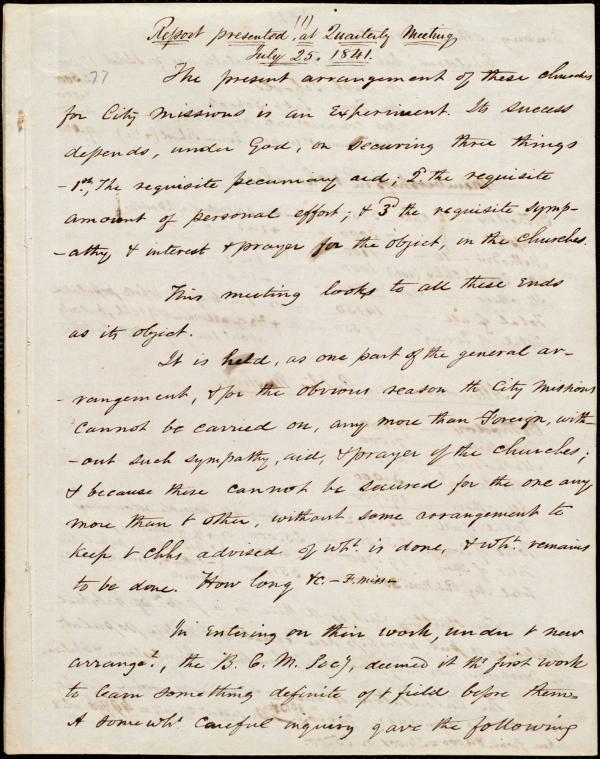 Report presented, at Quarterly Meeting,
!!!
July 25. 1841.
77
The present arrangement of these churches
for City missions is an Experiment. Its success
depends, under God, on securing three things
-1st, The requisite pecuniary aid; 2d the requisite
amount of personal effort; & 3d the requisite symp-
-athy, & interest & prayer for the object, in the churches.
This meeting looks to all these Ends
as its object.
It is held, as one part of the general ar-
-rangement, & for the obvious reason th City missions
cannot be carried on, any more than Foreign, with-
-out such sympathy, aid, & prayer of the churches;
& because these cannot be secured for the one any
more than t other, without some arrangement to
keep t chhs advised of wht. is done, & wht. remains
to be done. How long &c. - F. miss -
In Entering on their work, under t new
arranget., the B. C. M. Socy, deemed it ths first work
to learn something definite of t field before them.
A somewht careful inquiry gave the following